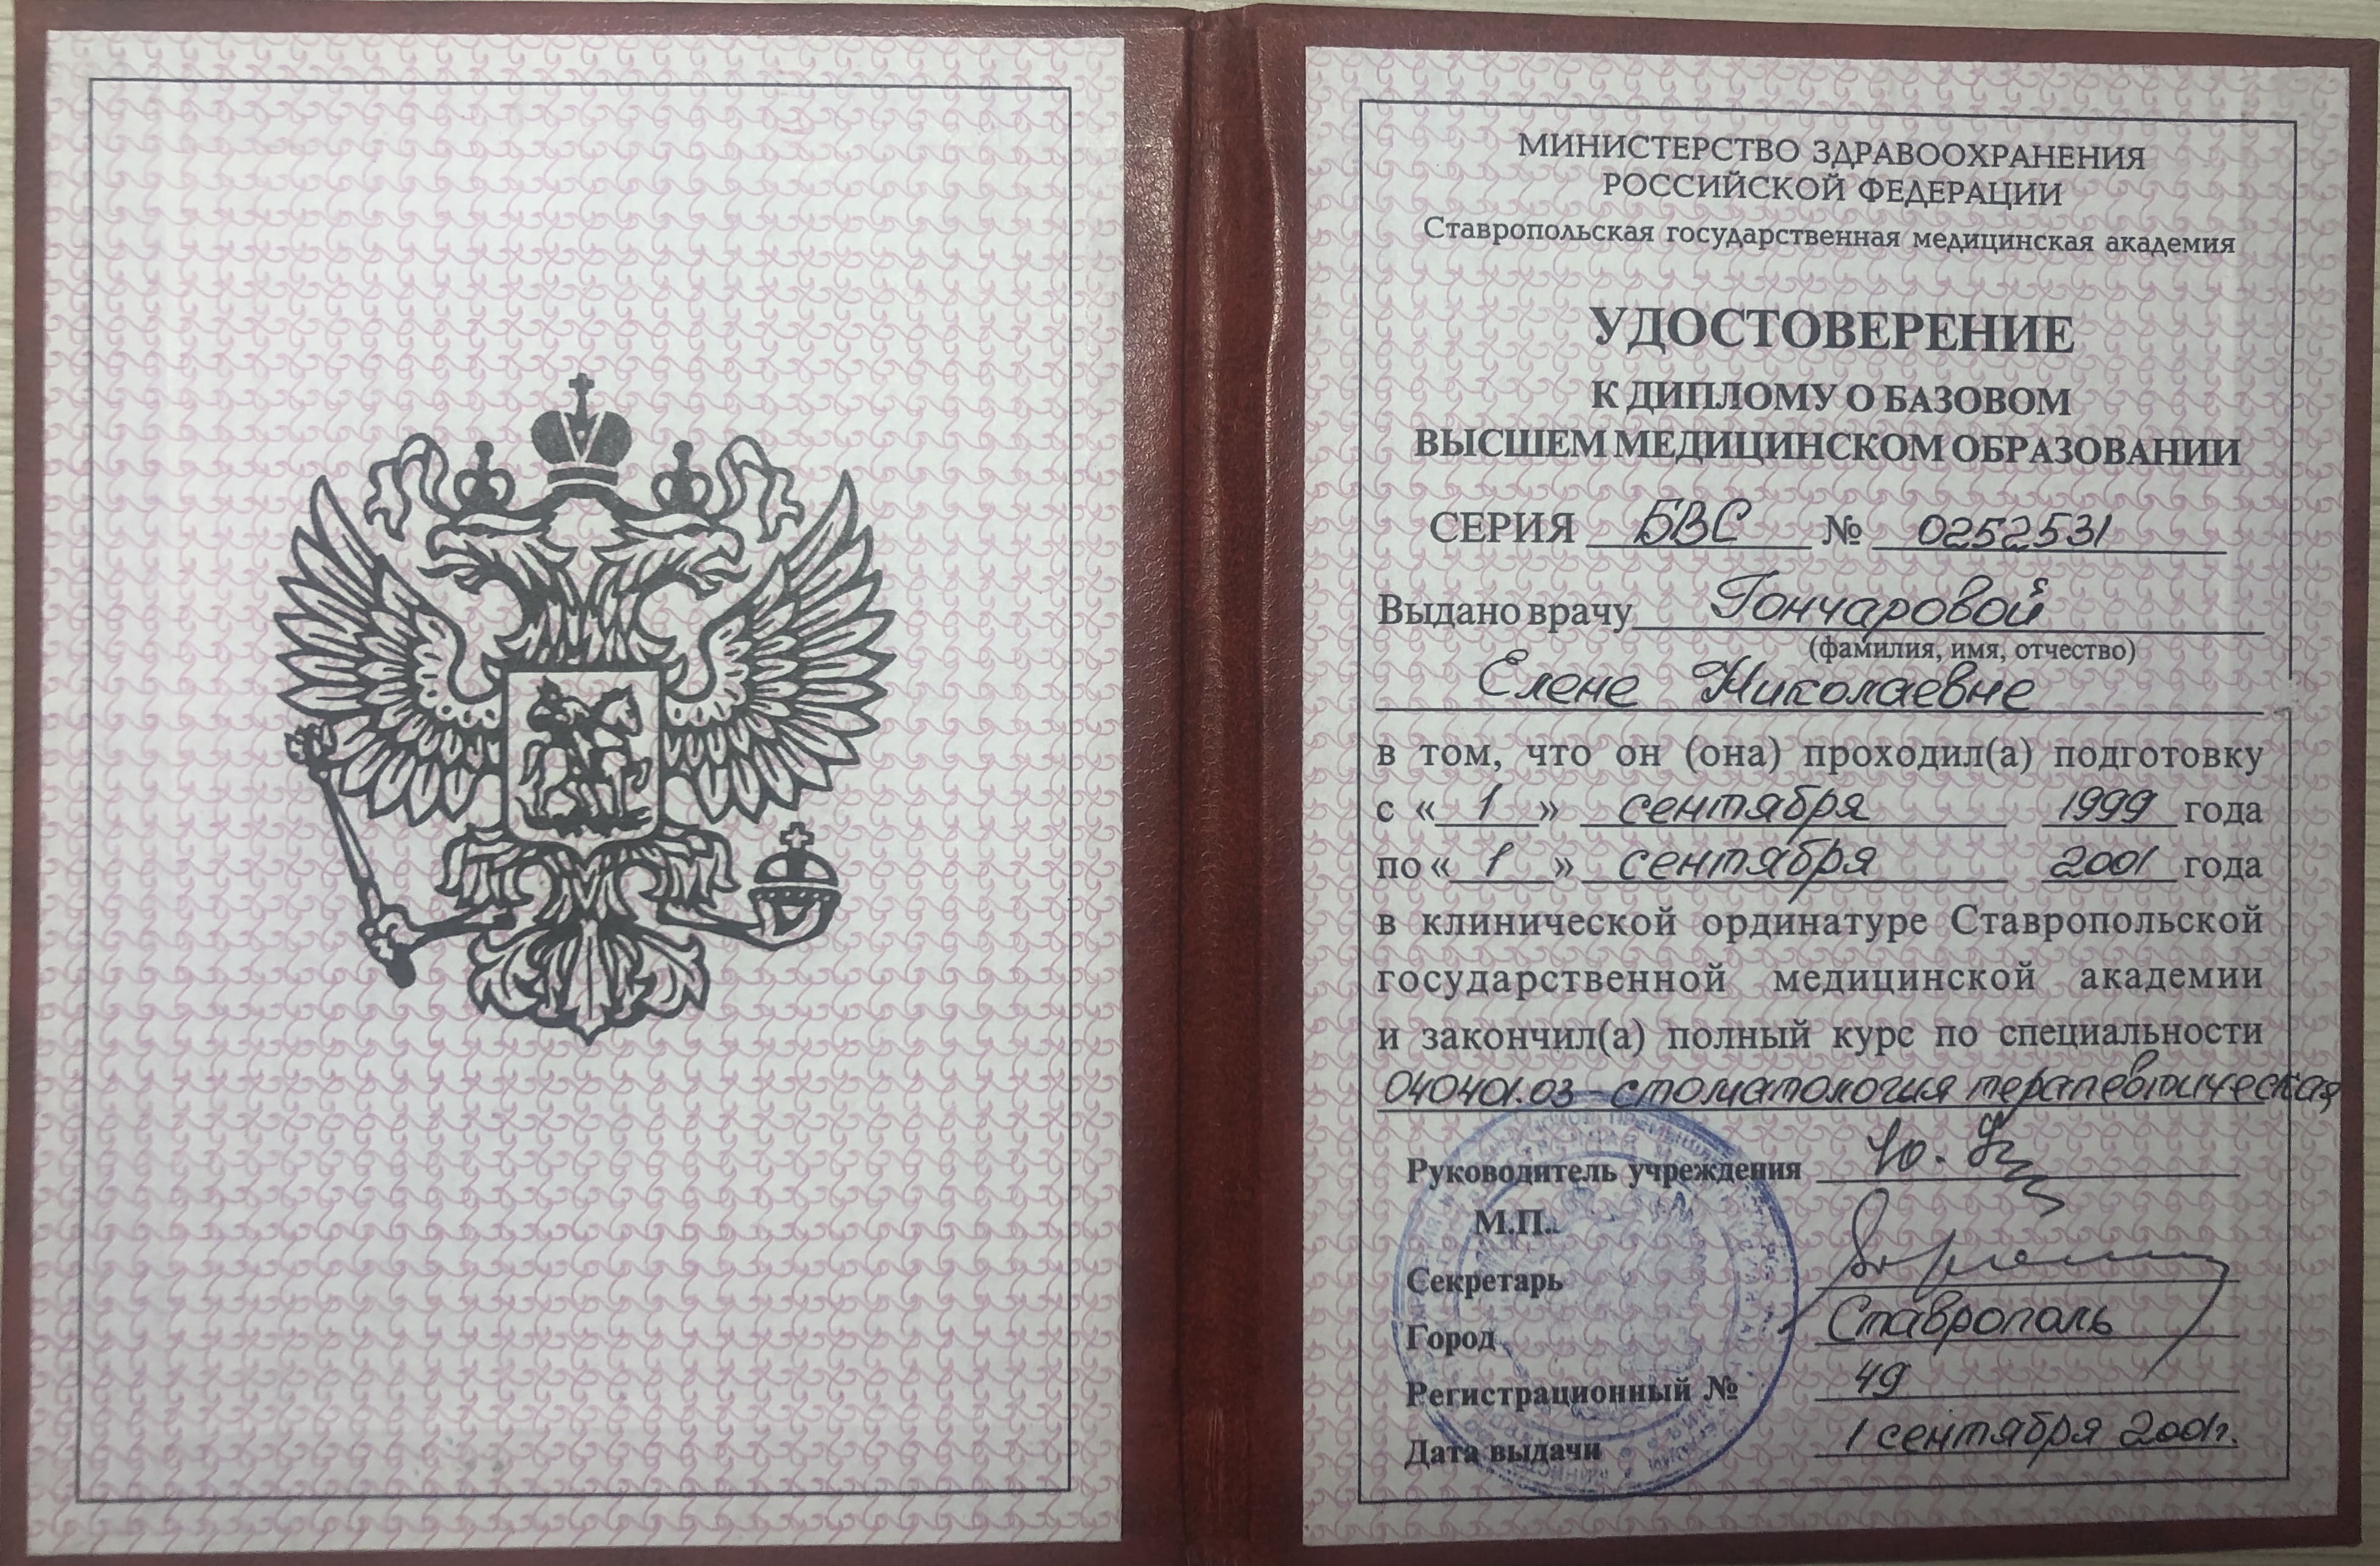 МИНИСТЕРСТВО ЗДРАВООХРАНЕНИЯ
РОССИЙСКОЙ ФЕДЕРАЦИИ
Ставропольская государственная медицинская академия
УДОСТОВЕРЕНИЕ
К ДИПЛОМУ О БАЗОВОМ
ВЫСШЕМ МЕДИЦИНСКОМ ОБРАЗОВАНИИ
СЕРИЯ БВС № 0252531
Выдано врачу Гончаровой
(фамилия, имя, отчество)
Елене Николаевне
в том, что он (она) проходил(а) подготовку
с « 1 » сентября 1999 года
по « 1 » сентября 2001 года
в клинической ординатуре Ставропольской
государственной медицинской академии
и закончил(а) полный курс по специальности
040401.03 стоматология терапевтическая
Руководитель учреждения
М.П.
Секретарь
Город Ставрополь
Регистрационный № 49
Дата выдачи 1 сентября 2001г.